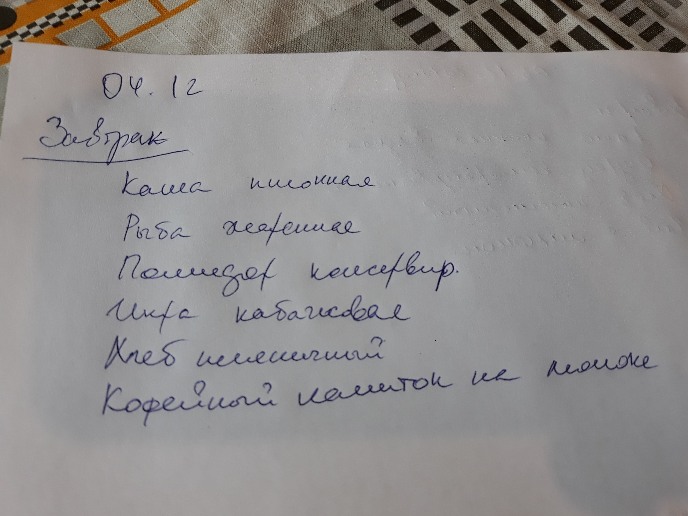 04.12
Завтрак
Каша пшонная
Рыба жаренная
Помидор консервир.
Икра кабачковая
Хлеб пшеничный
Кофейный напиток на молоке